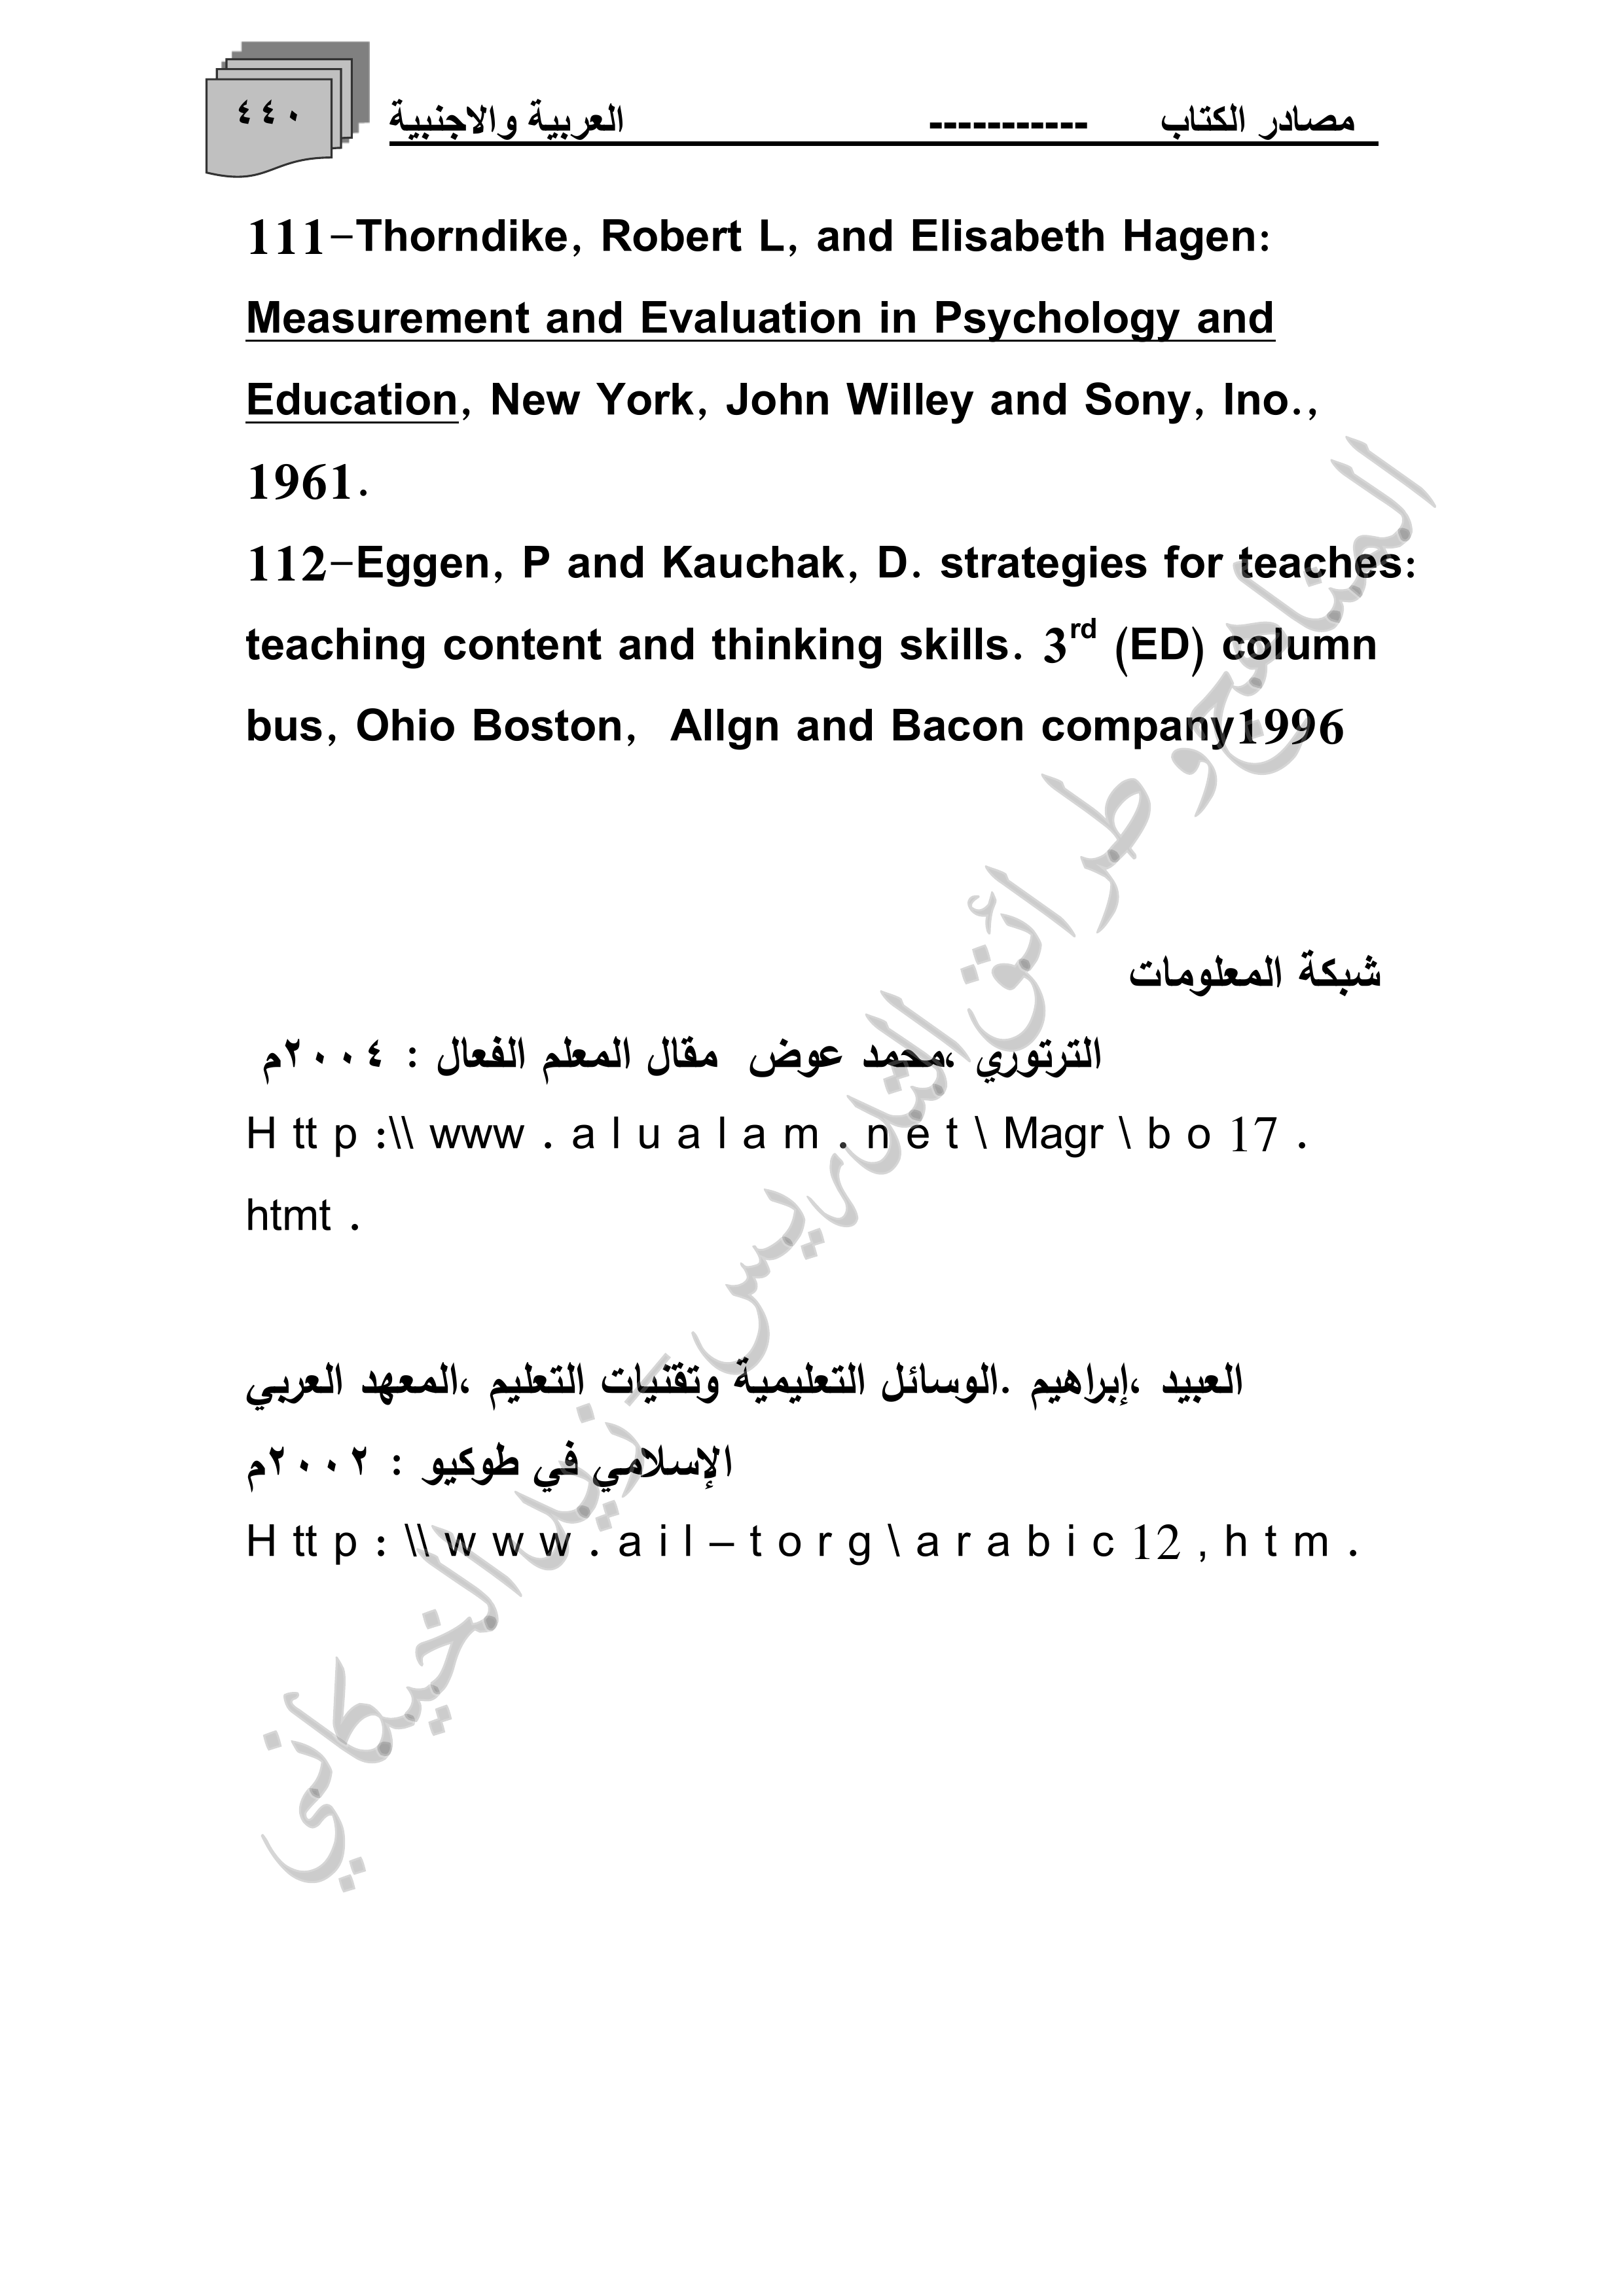 مصادر الكتاب ----------- العربية والاجنبية ٤٤٠
111-Thorndike, Robert L, and Elisabeth Hagen:
Measurement and Evaluation in Psychology and
Education, New York, John Willey and Sony, Ino.,
1961.
112-Eggen, P and Kauchak, D. strategies for teaches:
teaching content and thinking skills. 3rd (ED) column
bus, Ohio Boston, Allgn and Bacon company1996
شبكة المعلومات
الترتوري ،محمد عوض مقال المعلم الفعال : ٢٠٠٤م
H tt p :\\ www . a l u a l a m . n e t \ Magr \ b o 17 .
htmt .
العبيد ،إبراهيم .الوسائل التعليمية وتقنيات التعليم ،المعهد العربي
الإسلامي في طوكيو : ٢٠٠٢م
H tt p : \\ w w w . a i l – t o r g \ a r a b i c 12 , h t m .
المناهج وطرائق التدريس - زيد الخيكاني